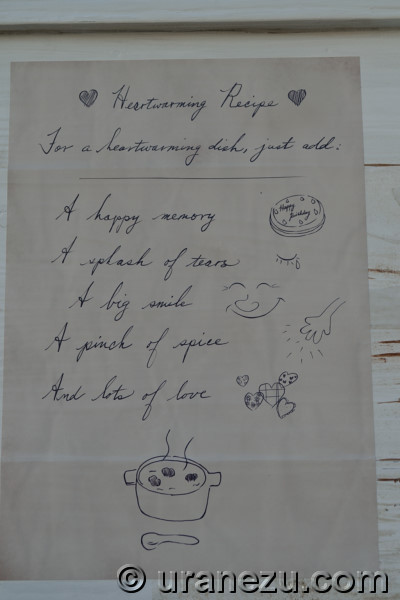 Heartwarming Recipe
For a heartwarming dish, just add:
A happy memory
Happy
Birthday
A splash of tears
A big smile
A pinch of spice
And lots of love
© uranezu.com